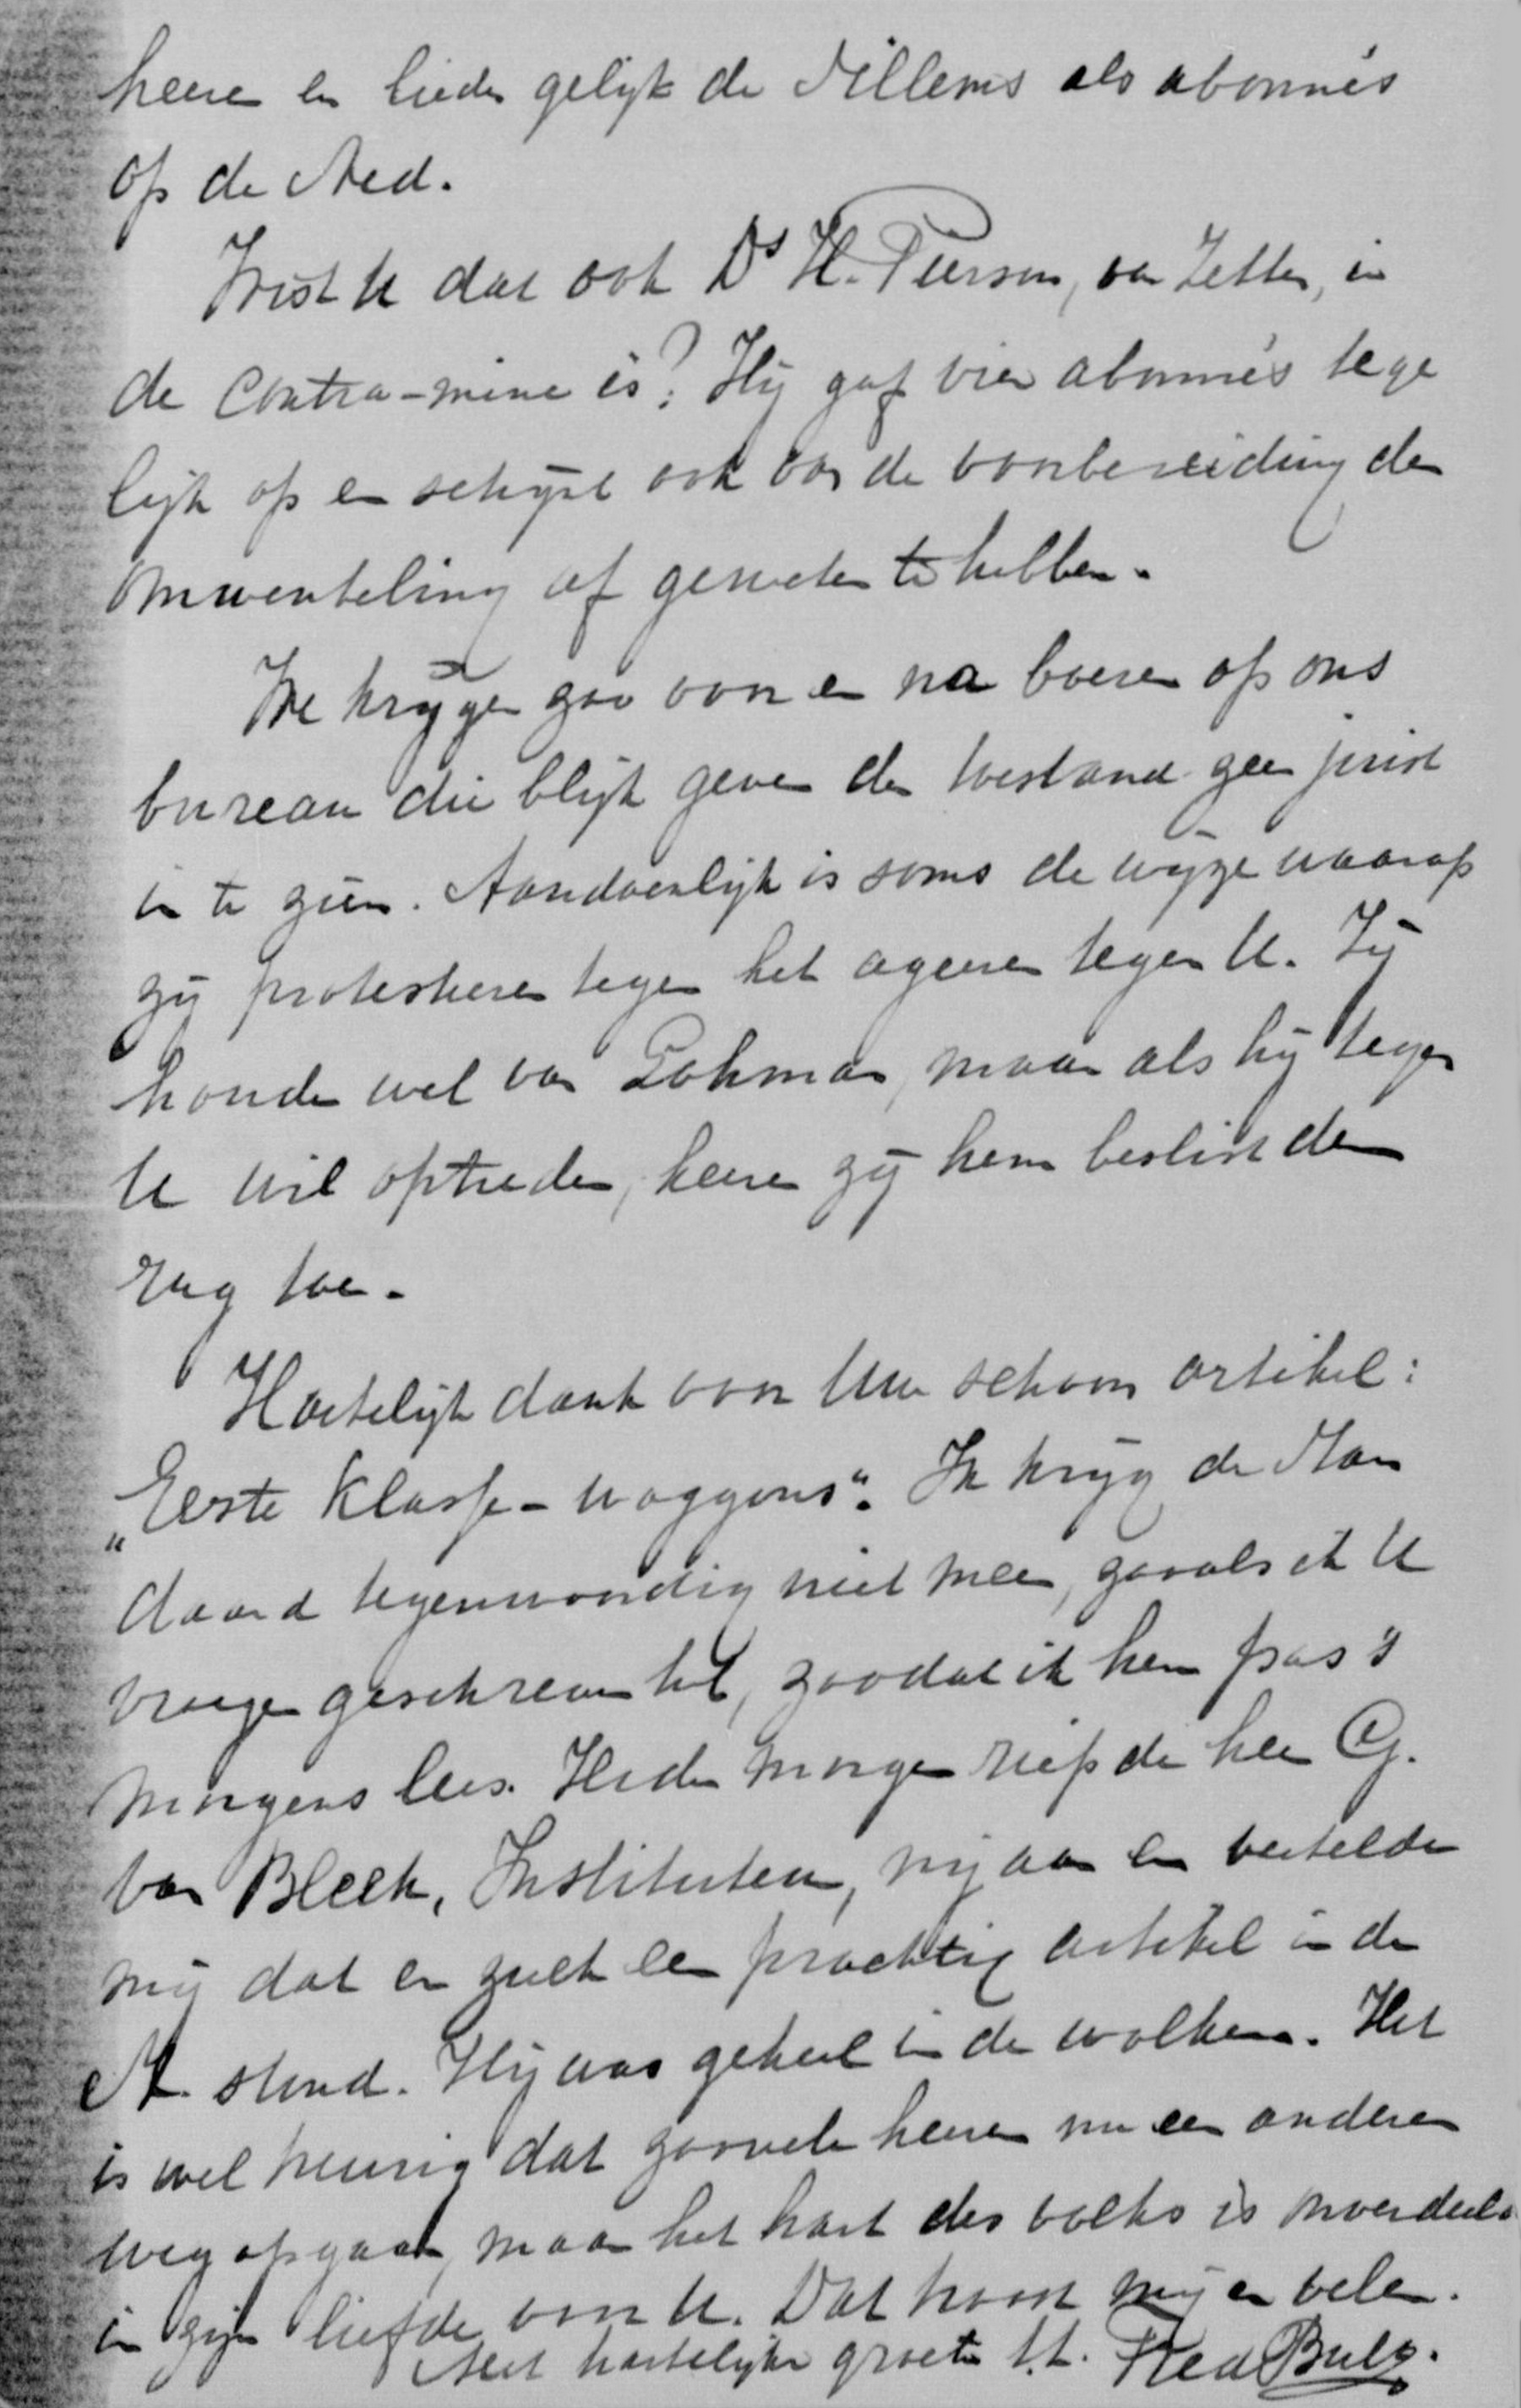 heeren en lieden gelijk de Tillems als abonnés
op de Ned.
Wist U dat ook Ds H. Pierson, van Zetten, in
de contra-mine is? Hij gaf vier abonnés tege
lijk op en schijnt ook van de voorbereiding der
omwenteling af geweten te hebben.
We krijgen zoo voor en na boeren op ons
bureau die blijk geven den toestand zeer juist
in te zien. Aandoenlijk is soms de wijze waarop
zij protesteeren tegen het ageeren tegen U. Zij
houden wel van Lohman, maar als hij tegen
U wil optreden, keeren zij hem beslist den
rug toe.
Hartelijk dank voor Uw schoon artikel:
„Eerste klasse-waggons“. Ik krijg de Stan
daard tegenwoordig niet meer, zooals ik U
vroeger geschreven heb, zoodat ik hem pas 's
morgens lees. Heden morgen riep de heer G.
van Bleek, Instituteur, mij aan en vertelde
mij dat er zulk een prachtig artikel in de
St. stond. Hij was geheel in de wolken. Het
is wel treurig dat zoovele heeren nu een anderen
weg opgaan, maar het hart des volks is onverdeeld
in zijn liefde voor U. Dat troost mij en velen.
Met hartelijke groeten t.t. Fred Bulg.